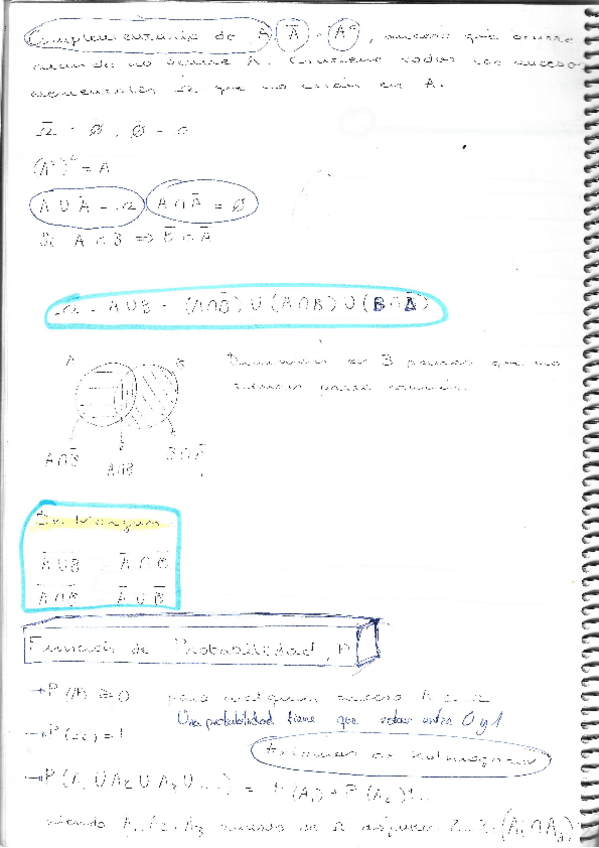 Complementario de A Ā = Aᶜ, suceso que ocurre
cuando no ocurre A. Contiene todos los sucesos
elementales Ω que no están en A.
Ω̄ = Ø, Ø̄ = Ω
(Aᶜ)ᶜ = A
A ∪ Ā = Ω A ∩ Ā = Ø
Si A ⊂ B => B̄ ⊂ Ā
Ω = A∪B = (A∩B̄) ∪ (A∩B) ∪ (B∩Ā)
A B en 3 partes que no
tienen partes
A∩B̄ A∩B B∩Ā
De Morgan
A∪B Ā∩B̄
A∩B Ā∪B̄
Función de Probabilidad, P
→P(A) ≥0 para cualquier suceso A ⊂ Ω
Una probabilidad tiene que estar entre 0 y 1
→P(Ω)=1
Axiomas de Kolmogorov
→P(A₁∪A₂∪A₃∪...) = P(A₁)+P(A₂)+...
siendo A₁, A₂, A₃ sucesos de Ω (Aᵢ∩Aⱼ)